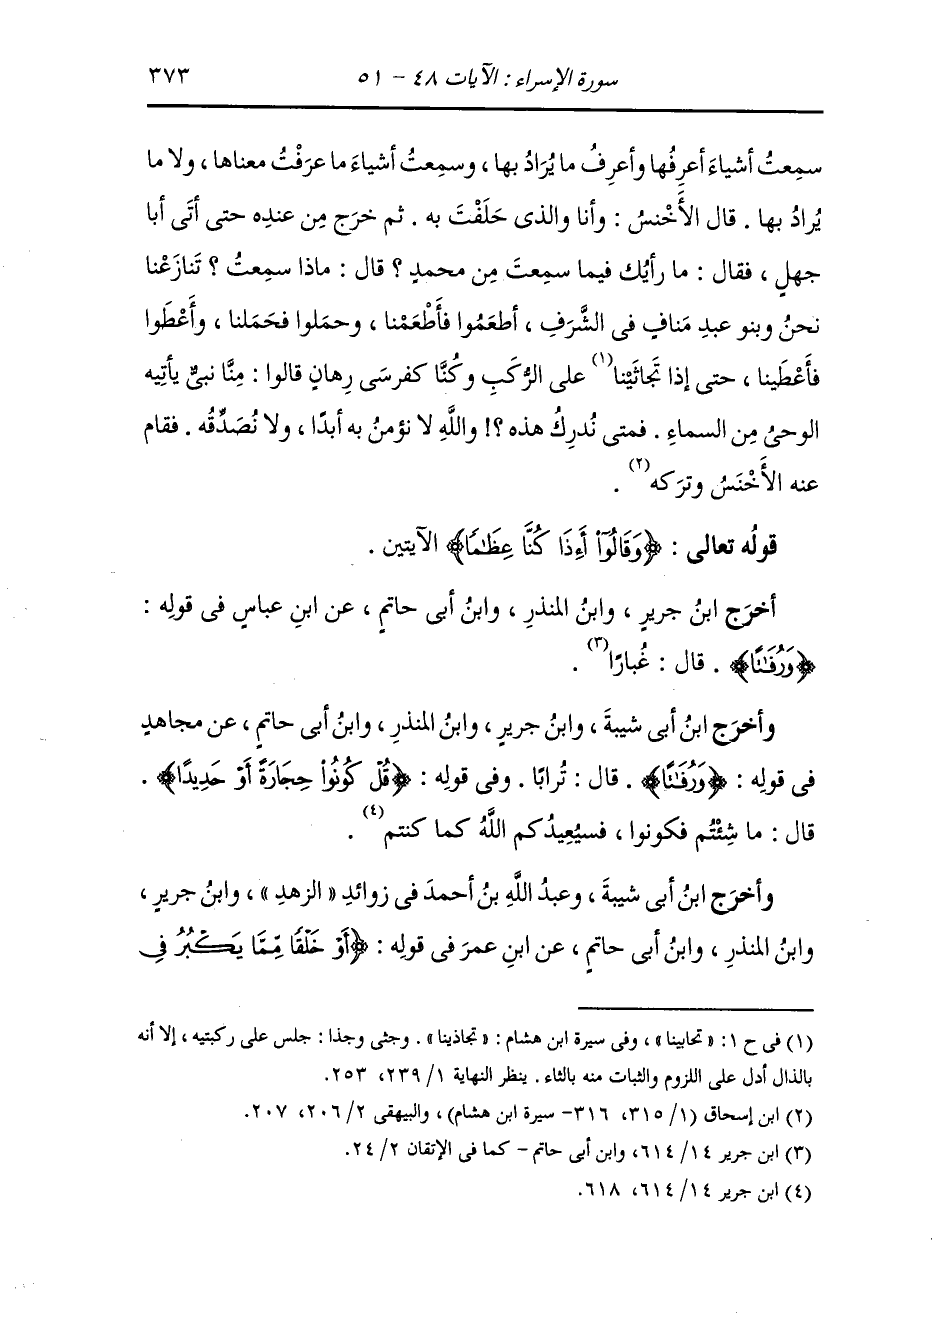 سورة الإسراء : الآيات ٤٨ – ٥١ ٣٧٣
سمِعتُ أشياءَ أعرِفُها وأعرِفُ ما يُرَادُ بها ، وسمِعتُ أشياءَ ما عرَفْتُ معناها ، ولا ما
يُرادُ بها . قال الأَخْنسُ : وأنا والذى حَلَفْتَ به . ثم خرَج مِن عندِه حتى أتَى أبا
جهلٍ ، فقال : ما رأيُك فيما سمِعتَ مِن محمدٍ ؟ قال : ماذا سمِعتُ ؟ تَنازَعْنا
نحنُ وبنو عبدِ مَنافٍ فى الشَّرَفِ ، أطعَمُوا فأَطْعَمْنا ، وحمَلوا فحَمَلنا ، وأَعْطَوا
فأَعْطَينا ، حتى إذا تَجاثَيْنا(١) على الرُّكَبِ وكُنَّا كفرسَى رِهانٍ قالوا : مِنَّا نبىٌّ يأتيه
الوحىُ مِن السماءِ . فمتى نُدرِكُ هذه ؟! واللَّهِ لا نؤمنُ به أبدًا ، ولا نُصَدِّقُه . فقام
عنه الأَخْنَسُ وترَكه(٢) .
قولُه تعالى : ﴿وَقَالُوٓا۟ أَءِذَا كُنَّا عِظَـٰمًا﴾ الآيتين .
أخرَج ابنُ جريرٍ ، وابنُ المنذرِ ، وابنُ أبى حاتمٍ ، عن ابنِ عباسٍ فى قولِه :
﴿وَرُفَـٰتًا﴾ . قال : غُبارًا(٣) .
وأخرَج ابنُ أبى شيبةَ ، وابنُ جريرٍ ، وابنُ المنذرِ ، وابنُ أبى حاتمٍ ، عن مجاهدٍ
فى قولِه : ﴿وَرُفَـٰتًا﴾ . قال : تُرابًا . وفى قولِه : ﴿قُلْ كُونُوا۟ حِجَارَةً أَوْ حَدِيدًا﴾ .
قال : ما شِئْتُم فكونوا ، فسيُعِيدُكم اللَّهُ كما كنتم(٤) .
وأخرَج ابنُ أبى شيبةَ ، وعبدُ اللَّهِ بنُ أحمدَ فى زوائدِ « الزهدِ » ، وابنُ جريرٍ ،
وابنُ المنذرِ ، وابنُ أبى حاتمٍ ، عن ابنِ عمرَ فى قولِه : ﴿أَوْ خَلْقًا مِّمَّا يَكْبُرُ فِى
(١) فى ح ١ : « تحابينا » ، وفى سيرة ابن هشام : « تجاذينا » . وجثى وجذا : جلس على ركبتيه ، إلا أنه
بالذال أدل على اللزوم والثبات منه بالثاء . ينظر النهاية ١/ ٢٣٩، ٢٥٣.
(٢) ابن إسحاق (١/ ٣١٥، ٣١٦– سيرة ابن هشام) ، والبيهقى ٢/ ٢٠٦، ٢٠٧.
(٣) ابن جرير ١٤/ ٦١٤، وابن أبى حاتم – كما فى الإتقان ٢/ ٢٤.
(٤) ابن جرير ١٤/ ٦١٤، ٦١٨.